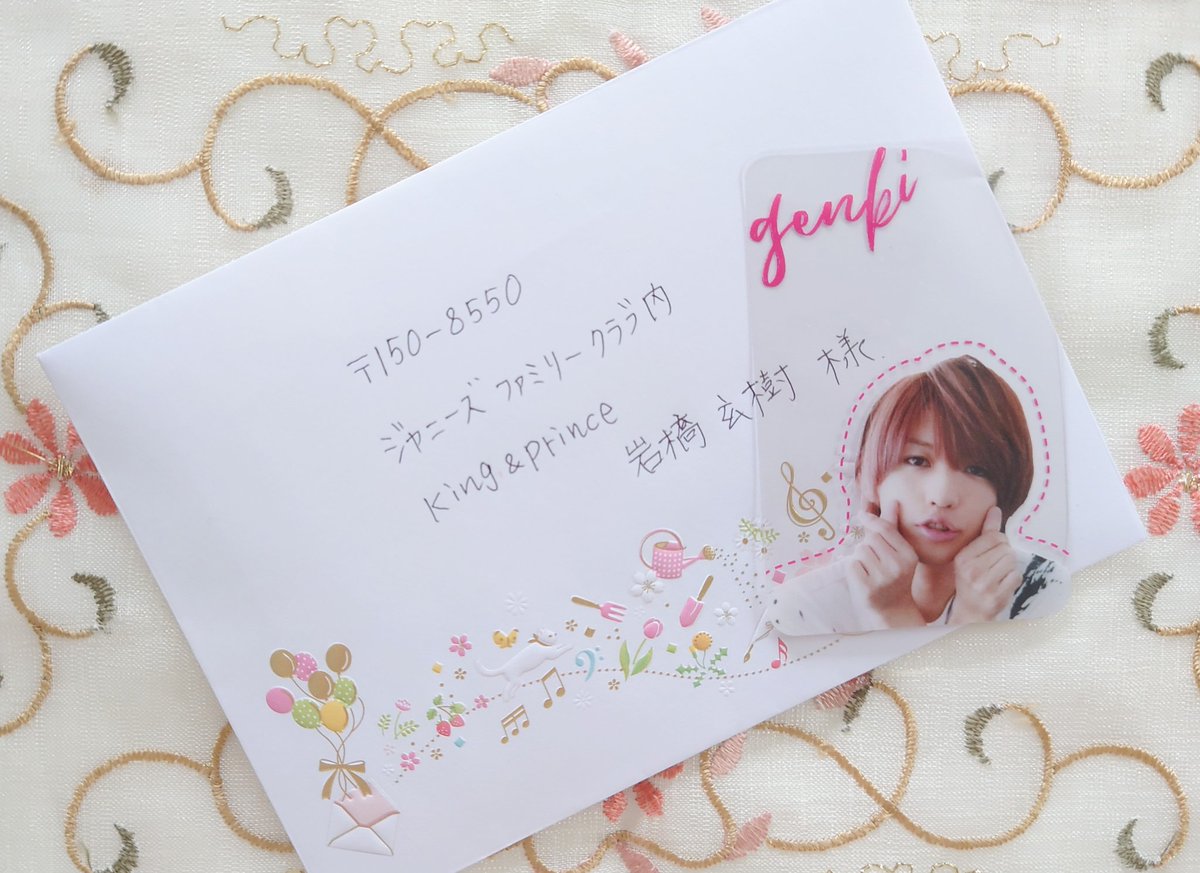 〒150-8550
ジャニーズ ファミリー クラブ内
King & Prince
岩橋 玄樹 様
genki